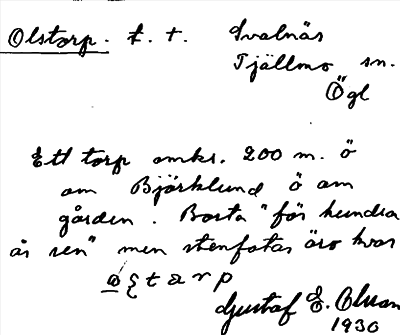 Olstorp. f. t. Svalnäs
Tjällmo sn.
Ögl
Ett torp omkr. 200 m. ö
om Björklund ö om
gården. Borta "för hundra
år sen" men stenfoten äro kvar
Gustaf E. Olsson
1930